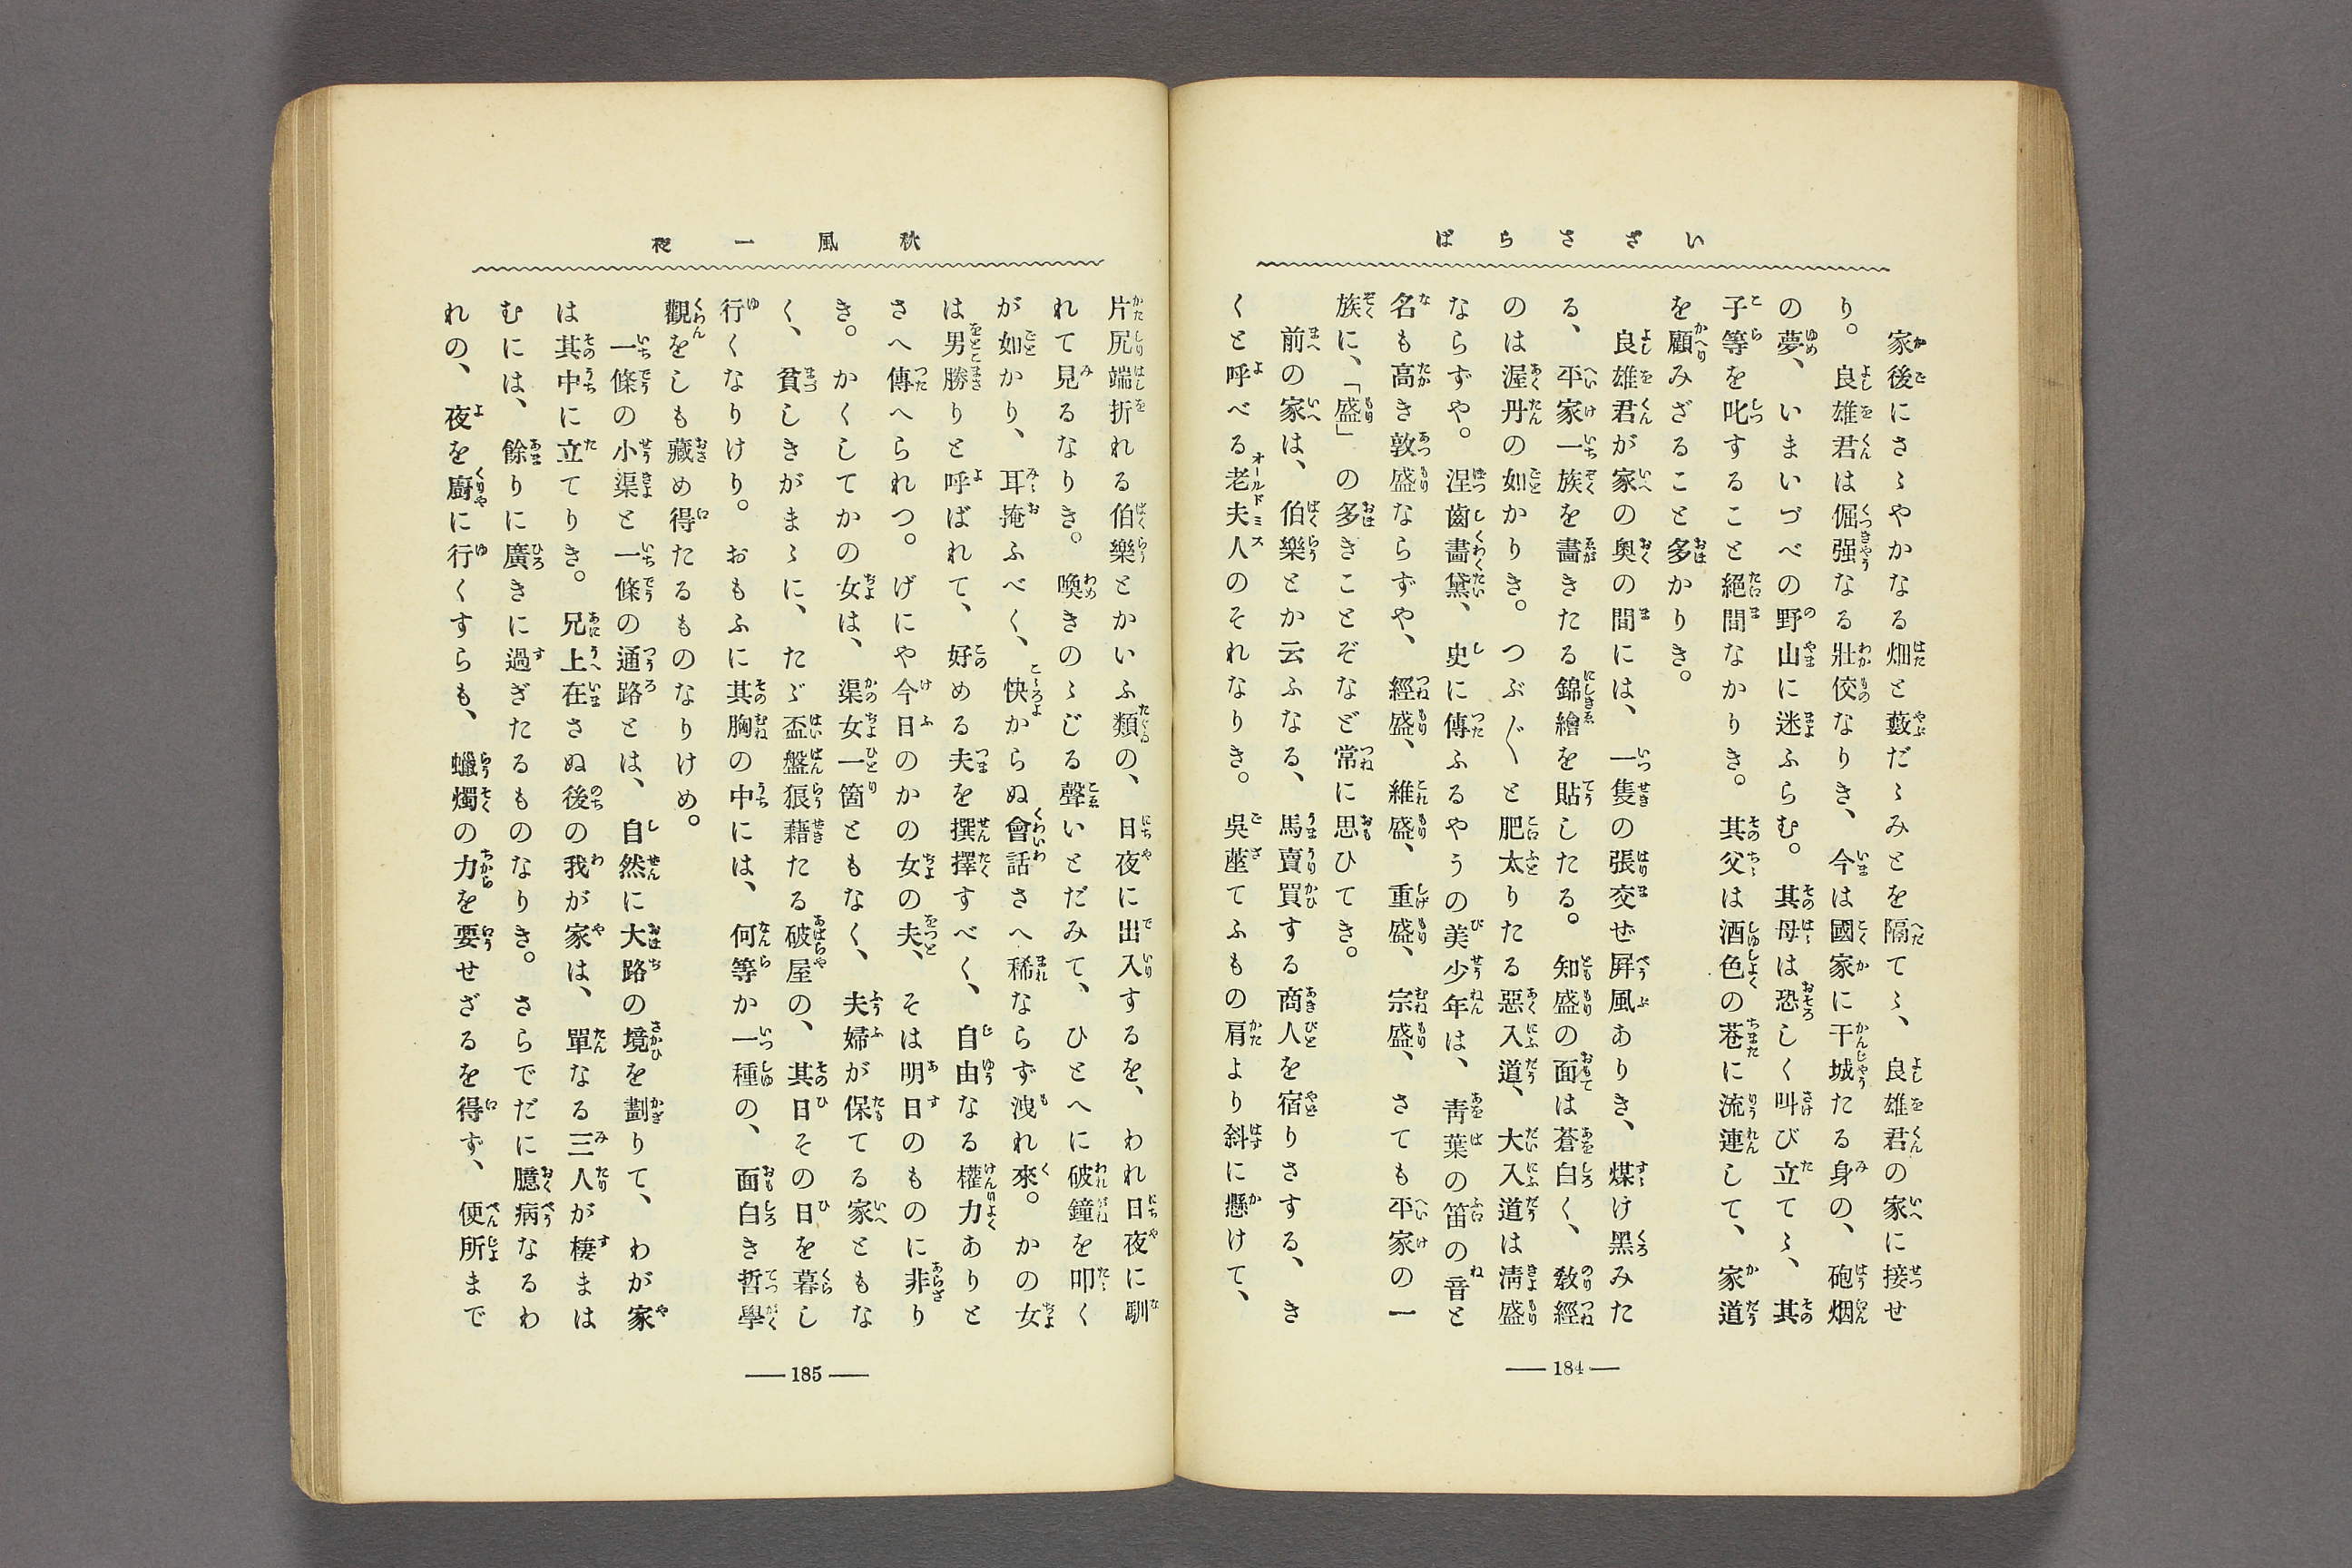 いさゝらば
家後にさゝやかなる畑と藪だゝみとを隔てゝ、良雄君の家に接せ
り。良雄君は倔强なる壯佼なりき、今は國家に干城たる身の、砲烟
の夢、いまいづべの野山に迷ふらむ。其母は恐しく叫び立てゝ、其
子等を叱すること絕間なかりき。其父は酒色の巷に流連して、家道
を顧みざること多かりき。
良雄君が家の奧の間には、一隻の張交ぜ屛風ありき、煤け黑みた
る、平家一族を畵きたる錦繪を貼したる。知盛の面は蒼白く、敎經
のは渥丹の如かりき。つぶ〲と肥太りたる惡入道、大入道は淸盛
ならずや。涅齒畵黛、史に傳ふるやうの美少年は、靑葉の笛の音と
名も高き敦盛ならずや、經盛、維盛、重盛、宗盛、さても平家の一
族に、「盛」の多きことぞなど常に思ひてき。
前の家は、伯樂とか云ふなる、馬賣買する商人を宿りさする、き
くと呼べる老夫人のそれなりき。吳蓙てふもの肩より斜に懸けて、
―184―
秋風一夜
片尻端折れる伯樂とかいふ類の、日夜に出入するを、われ日夜に馴
れて見るなりき。喚きのゝじる聲いとだみて、ひとへに破鐘を叩く
が如かり、耳掩ふべく、快からぬ會話さへ稀ならず洩れ來。かの女
は男勝りと呼ばれて、好める夫を撰擇すべく、自由なる權力ありと
さへ傳へられつ。げにや今日のかの女の夫、そは明日のものに非り
き。かくしてかの女は、渠女一箇ともなく、夫婦が保てる家ともな
く、貧しきがまゝに、たゞ盃盤狼藉たる破屋の、其日その日を暮し
行くなりけり。おもふに其胸の中には、何等か一種の、面白き哲學
觀をしも藏め得たるものなりけめ。
一條の小渠と一條の通路とは、自然に大路の境を劃りて、わが家
は其中に立てりき。兄上在さぬ後の我が家は、單なる三人が棲まは
むには、餘りに廣きに過ぎたるものなりき。さらでだに臆病なるわ
れの、夜を廚に行くすらも、蠟燭の力を要せざるを得ず、便所まで
―185―